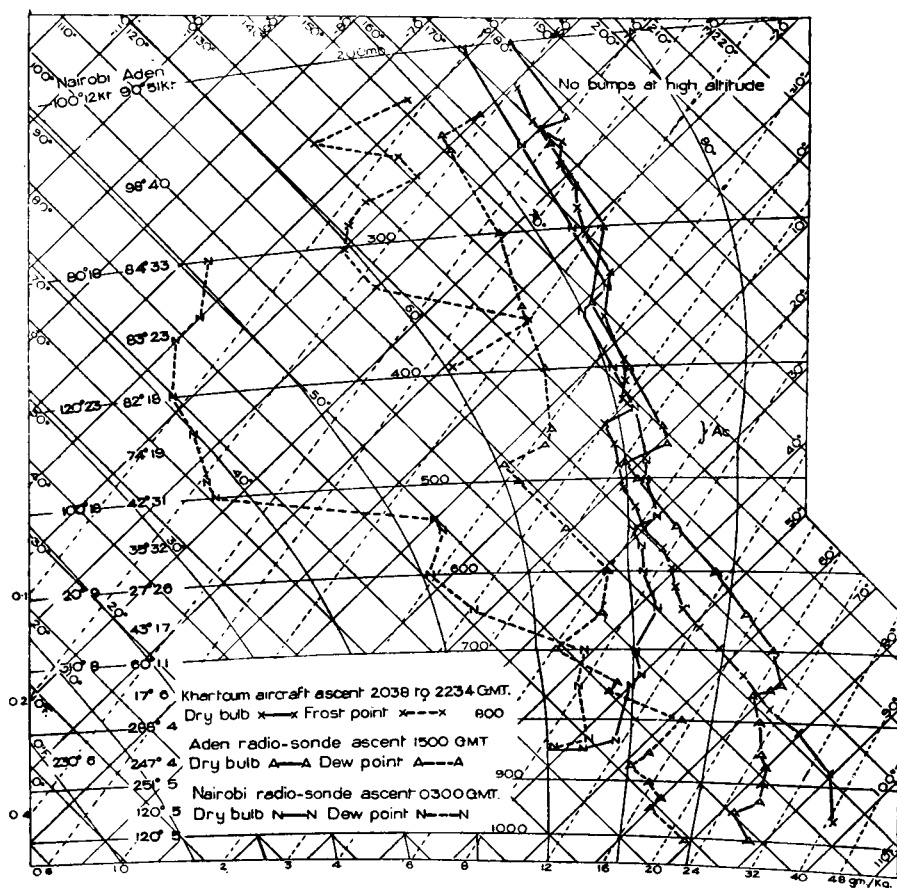 110° 120° 130° 160° 170° 180° 190° 200° 210° 220°
100°
200mb.
Nairobi Aden
100°12kt 90°51kt
No bumps at high altitude
90°
80°
98° 40
80°
300
80°18 84°33
60°
83° 23
400
50°
120°23 82°18
} Ac
74° 19
40°
500
100°18 42°31
35° 32
600
20° 9 27°26
43° 17
700
310° 8 60° 11
17° 6 Khartoum aircraft ascent 2038 to 2234 G.M.T.
Dry bulb x—x Frost point x---x 800
288° 4
Aden radio-sonde ascent 1500 GMT
230° 6 247° 4 Dry bulb A—A Dew point A---A
251° 5 Nairobi radio-sonde ascent 0300 G.M.T. 900
120° 5 Dry bulb N—N Dew point N---N
120° 5 1000
0.6 1.0 2 3 4 6 8 12 16 20 24 32 40 48 gm./Kg.